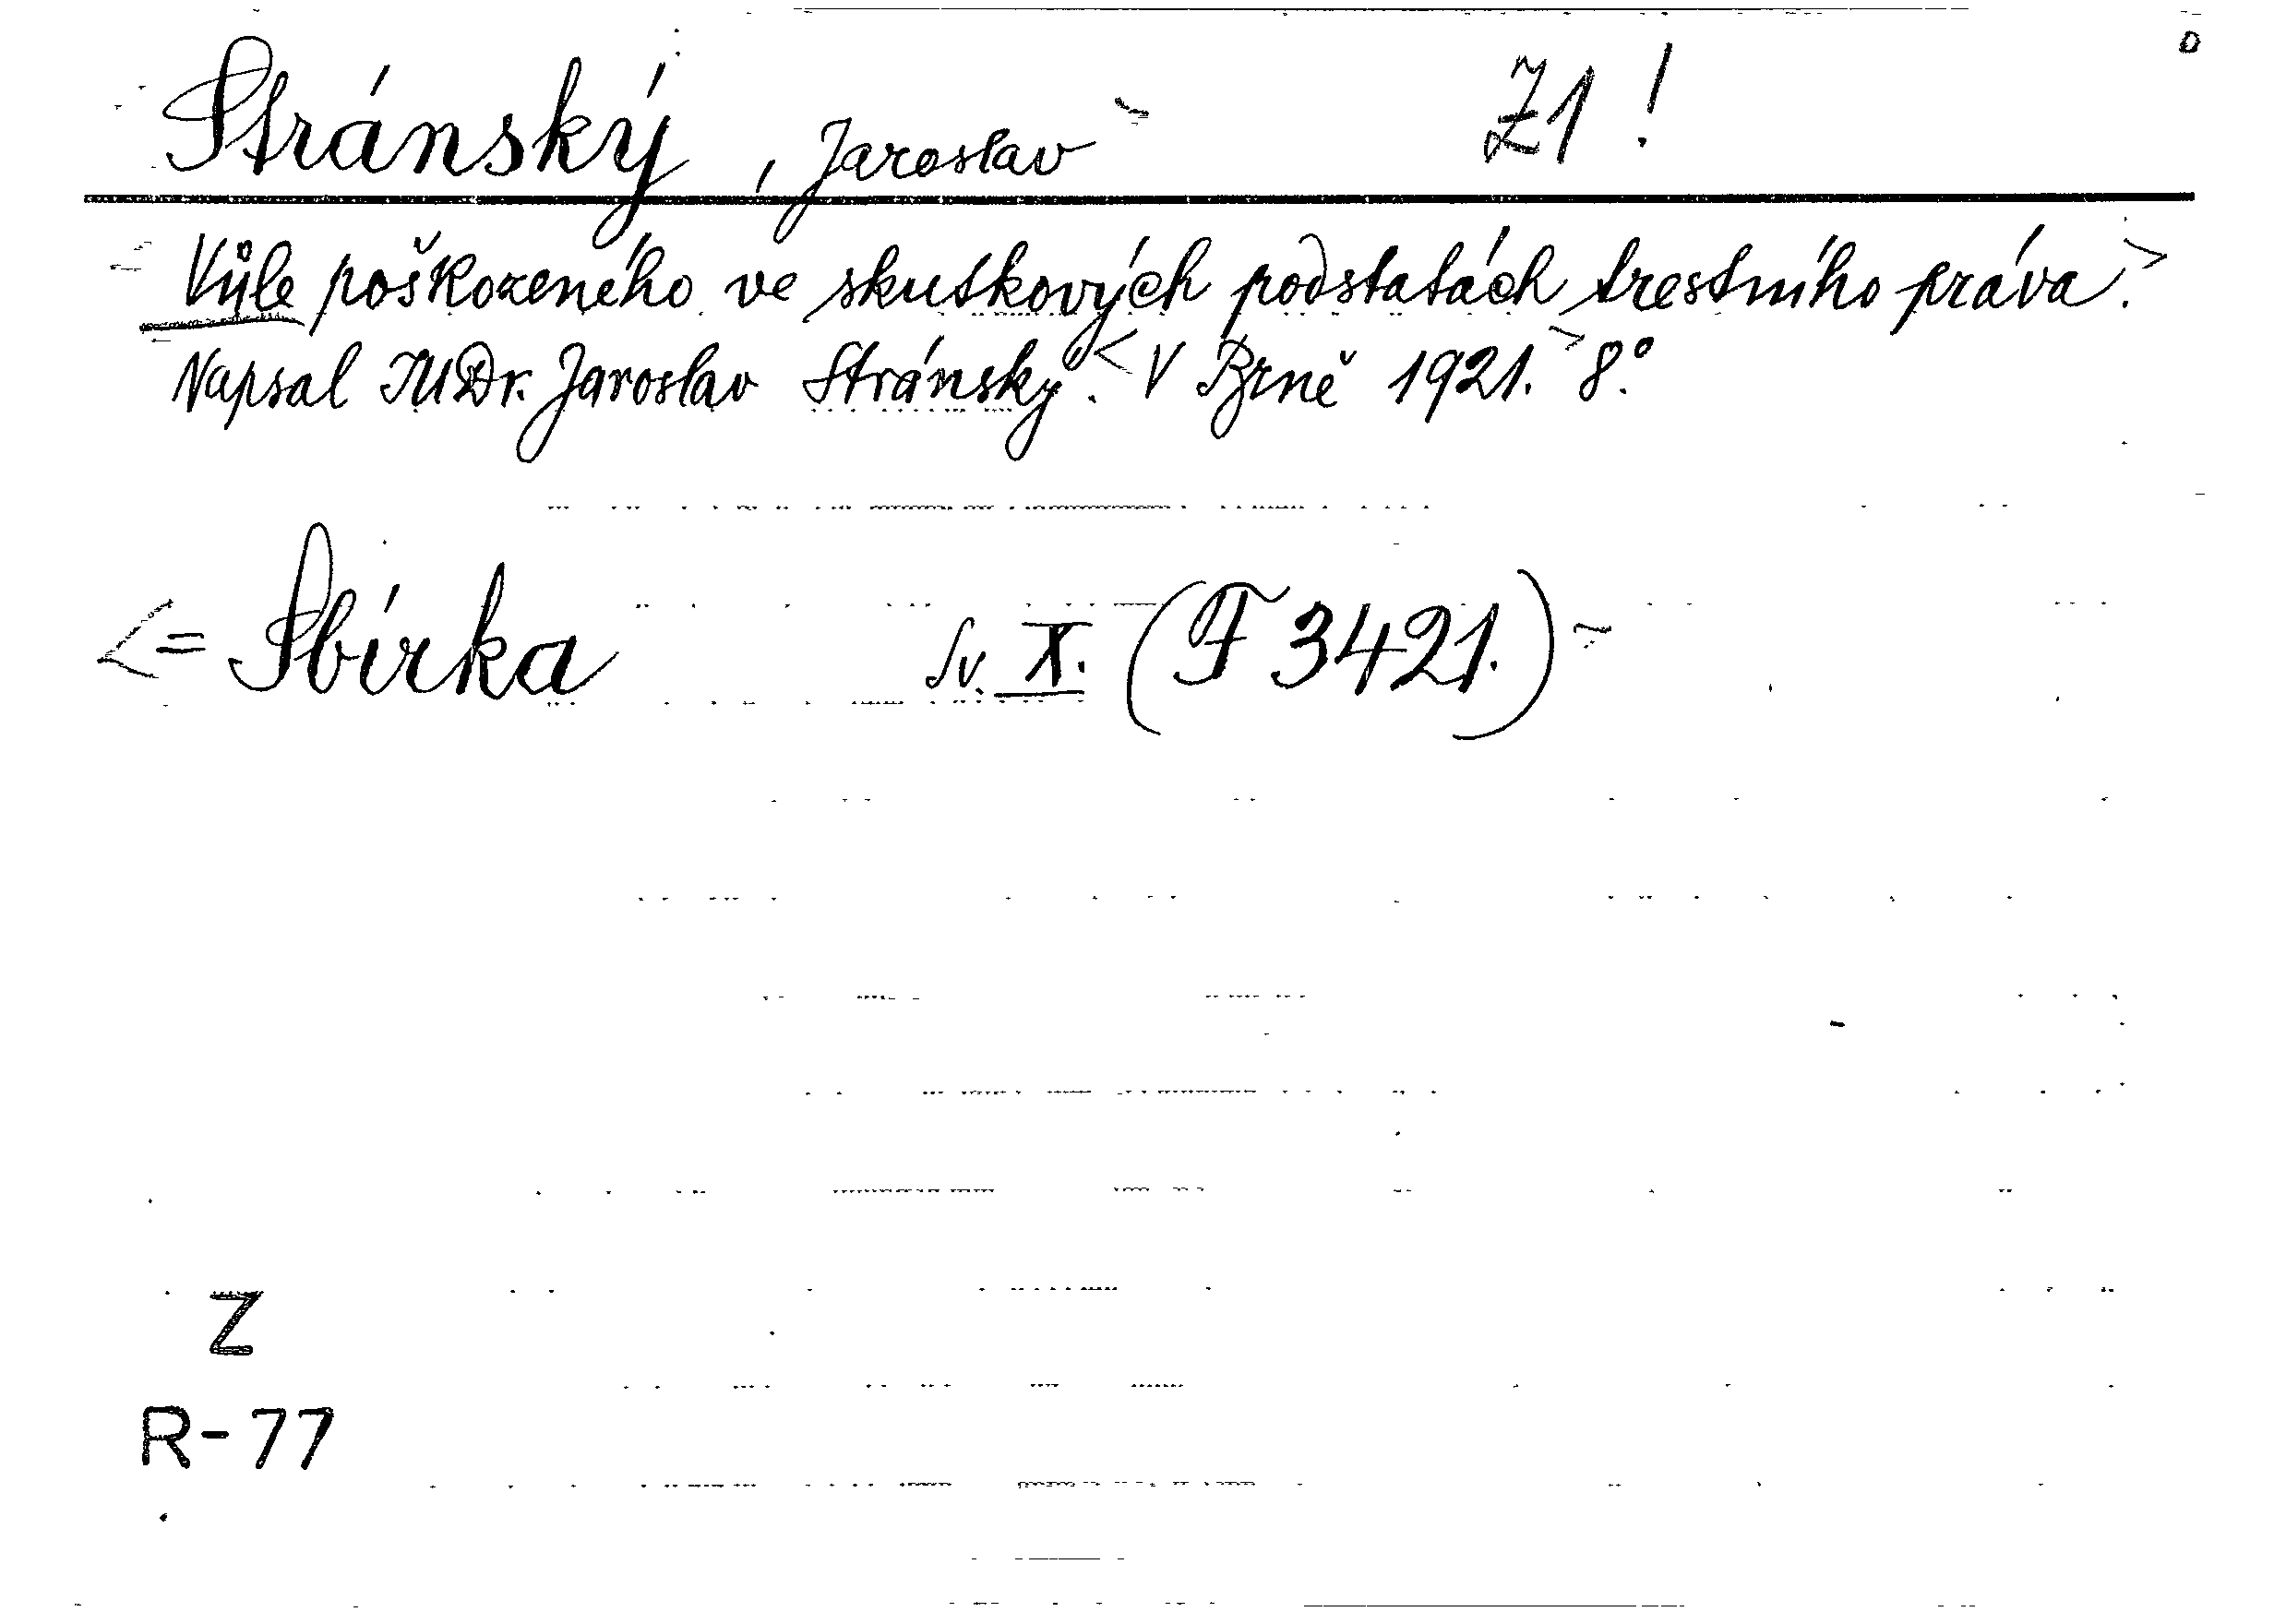 Stránský, Jaroslav Z1!
Vůle poškozeného ve skutkových podstatách trestního práva.
Napsal JUDr. Jaroslav Stránský. V Brně 1921. 8°.
= Sbírka Sv. X. (F 3421.)
Z
R-77